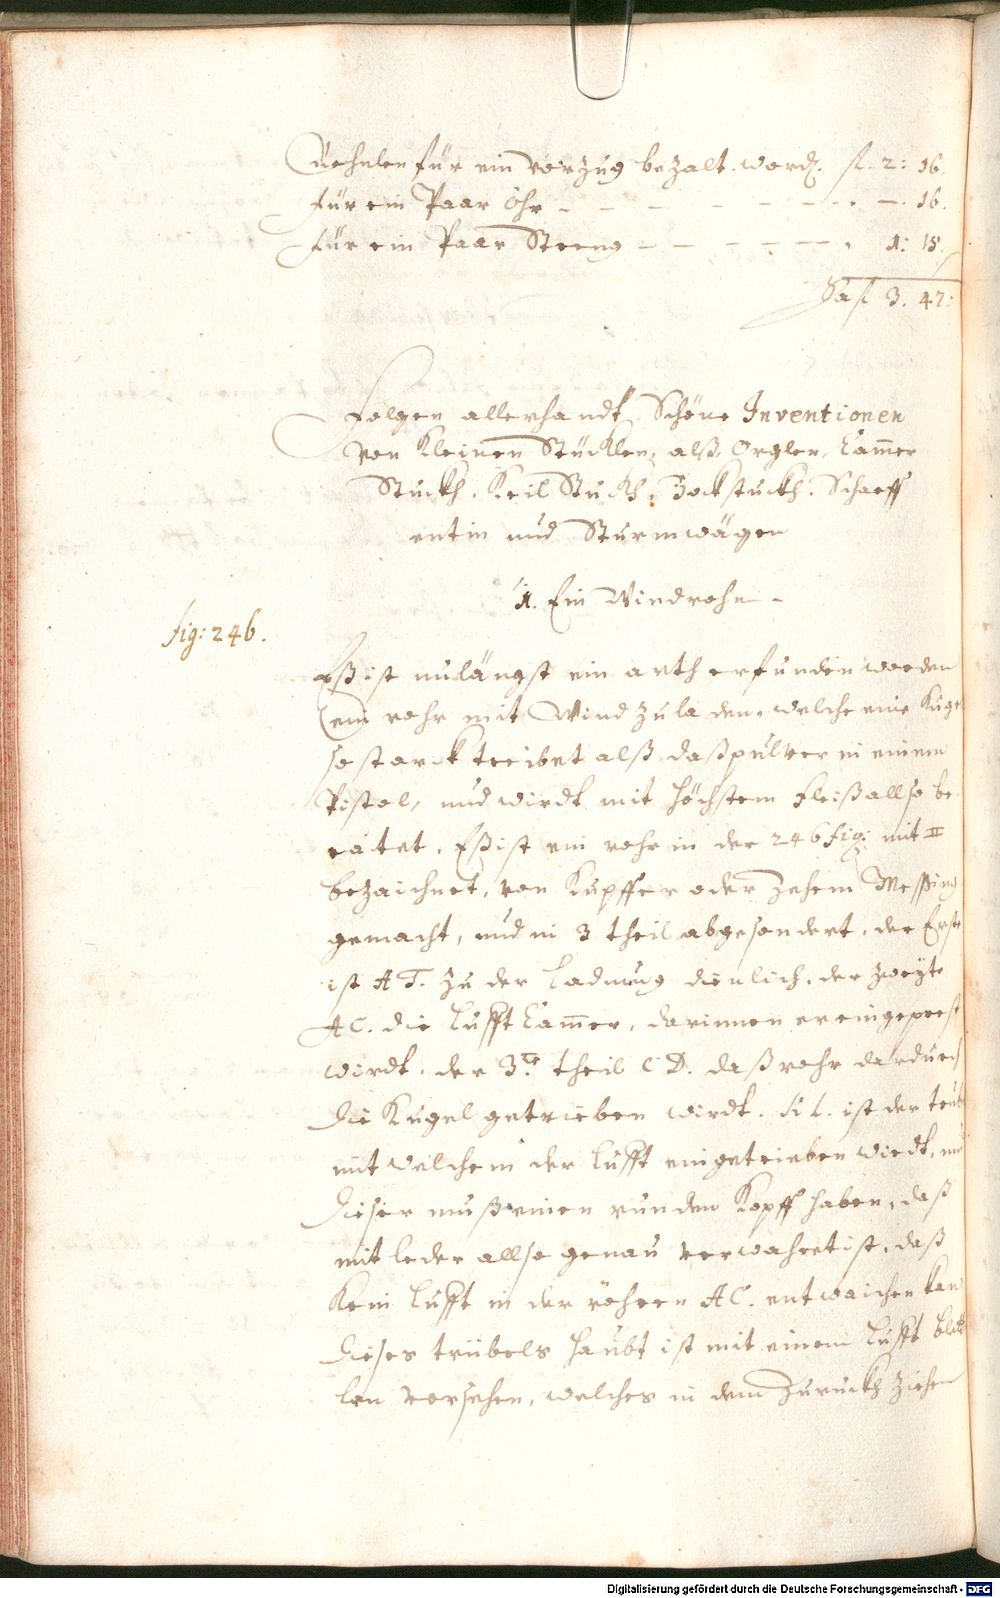 Rohrlen für ein vorzug bezalt word. fl. 2: 16.
für ein Paar Öhr – – – – – – – – 16.
für ein Paar Steeng – – – – – – 1: 15.
Sa fl 3. 47:
Folgen allerhandt Schöne Inventionen
von Kleinen Stücklen, alß Orglen, Camer
Stuckh, Keil Stuckh, Bockstuckh, Scharff
entin und Sturmwägen
1. Ein Windrohr –
fig: 246.
Eß ist unlängst ein arth erfunden worden
ein rohr mit Wind zu laden, welche eine Kugel
so starck treibet alß daß pulver in einem
Pistol, und wirdt mit höchstem fleiß allso be
raitet. Eß ist ein rohr in der 246 fig: mit
bezaichnet, von Kupffer oder zehem Messing
gemacht, und in 3 theil abgesondert, der Erste
ist A T. zu der Ladnung dienlich, der zweyte
AC. die Lufft Camer, darinnen er eingepresst
wirdt, der 3te theil C D. daß rohr dardurch
die Kugel getrieben wirdt. ist der
mit welchem der Lufft eingetrieben wirdt, und
dieser muß einen runden Kopff haben, daß
mit leder allso genau verwahrt ist, daß
Kein Lufft in der röhren AC. entwaichen kan
dieses trübels Haubt ist mit einem Lufft blätt
len versehen, welches in dem Zuruckh ziehen
Digitalisierung gefördert durch die Deutsche Forschungsgemeinschaft - DFG